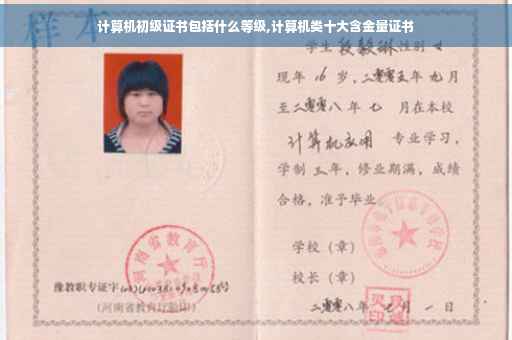 计算机初级证书包括什么等级,计算机类十大含金量证书
样本
学生 段毅琳 性别 女
现年 16 岁,二零零五年 九月
至二零零八年 七 月在本校
计算机应用 专业学习,
学制 三 年,修业期满,成绩
合格,准予毕业
学校(章)
校长(章)
二零零八年 月 一 日
河南省教育厅
豫教职专证字
(河南省教育厅验印)